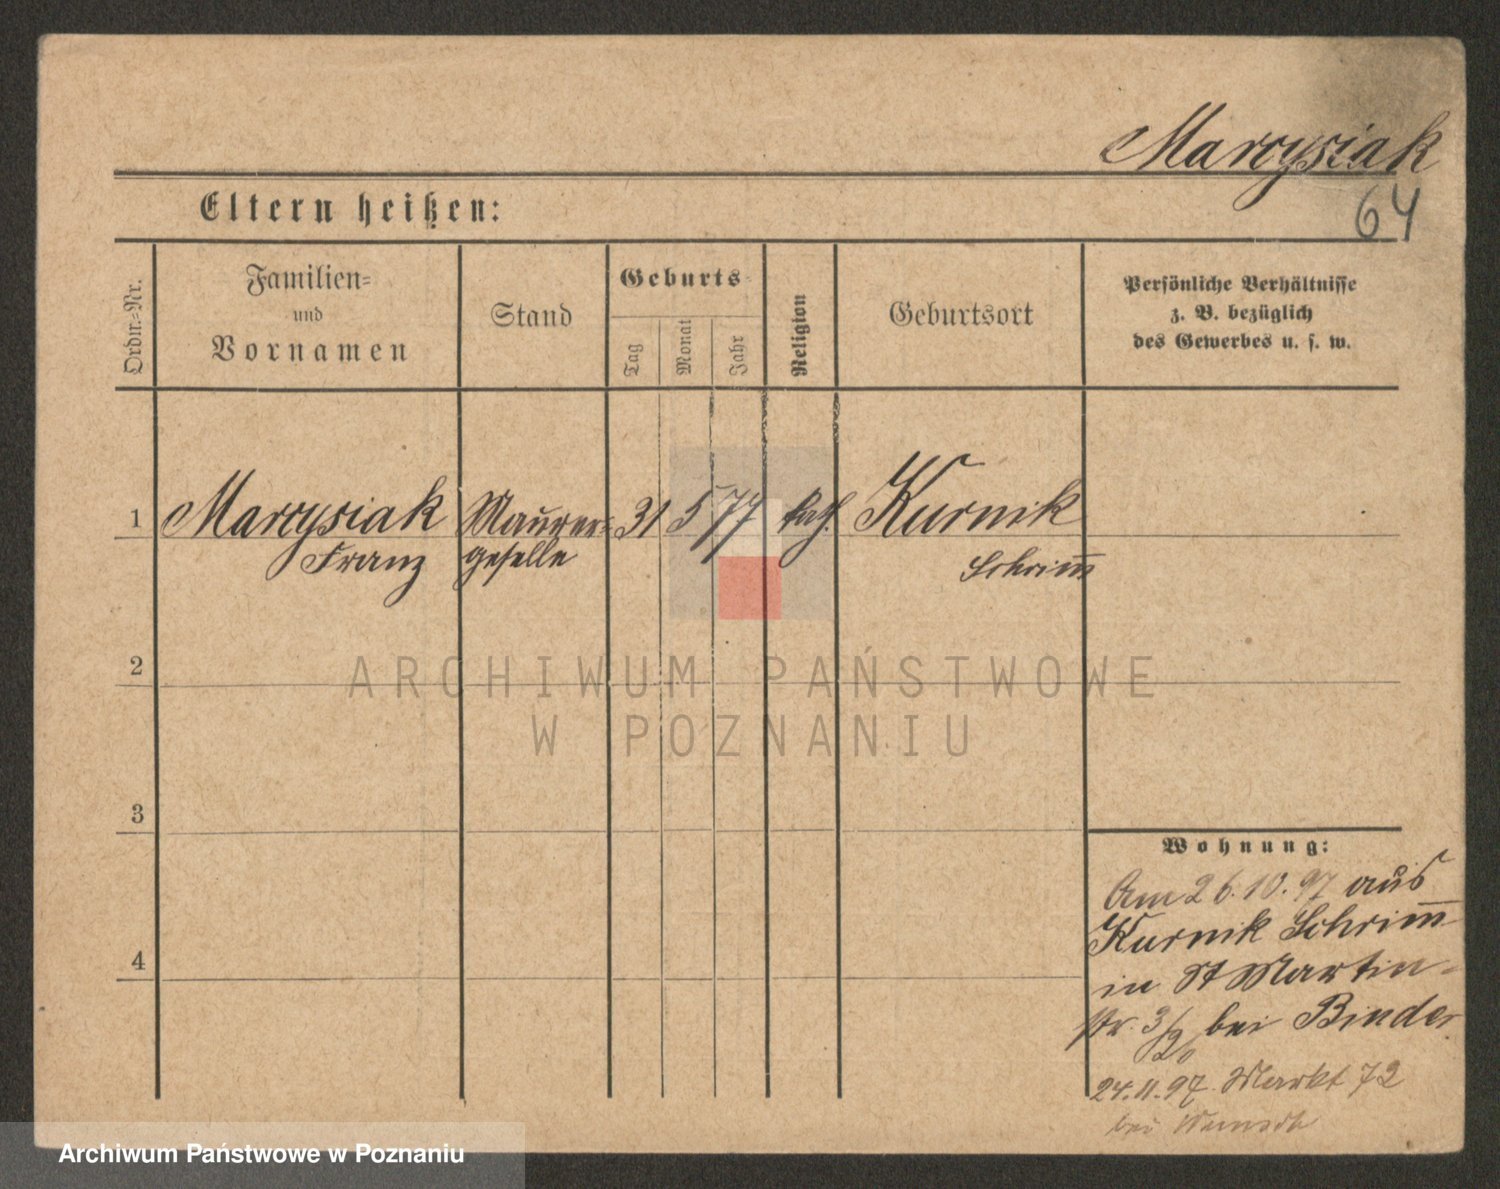 Marcysiak
64
Eltern heißen:
Ordn.-Nr.
Familien-
und
Vornamen
Stand
Geburts-
Tag
Monat
Jahr
Religion
Geburtsort
Persönliche Verhältnisse
z. B. bezüglich
des Gewerbes u. s. w.
1 Marcysiak Maurer- 31 5 77 kath. Kurnik
Franz geselle Schrim̅
ARCHIWUM PAŃSTWOWE
W POZNANIU
2
3
4
Wohnung:
Am 26.10.97 aus
Kurnik Schrim̅
in St Martin-
str. 3/ bei Binder
24.11.97. Markt 72
bei Wunsch
Archiwum Państwowe w Poznaniu